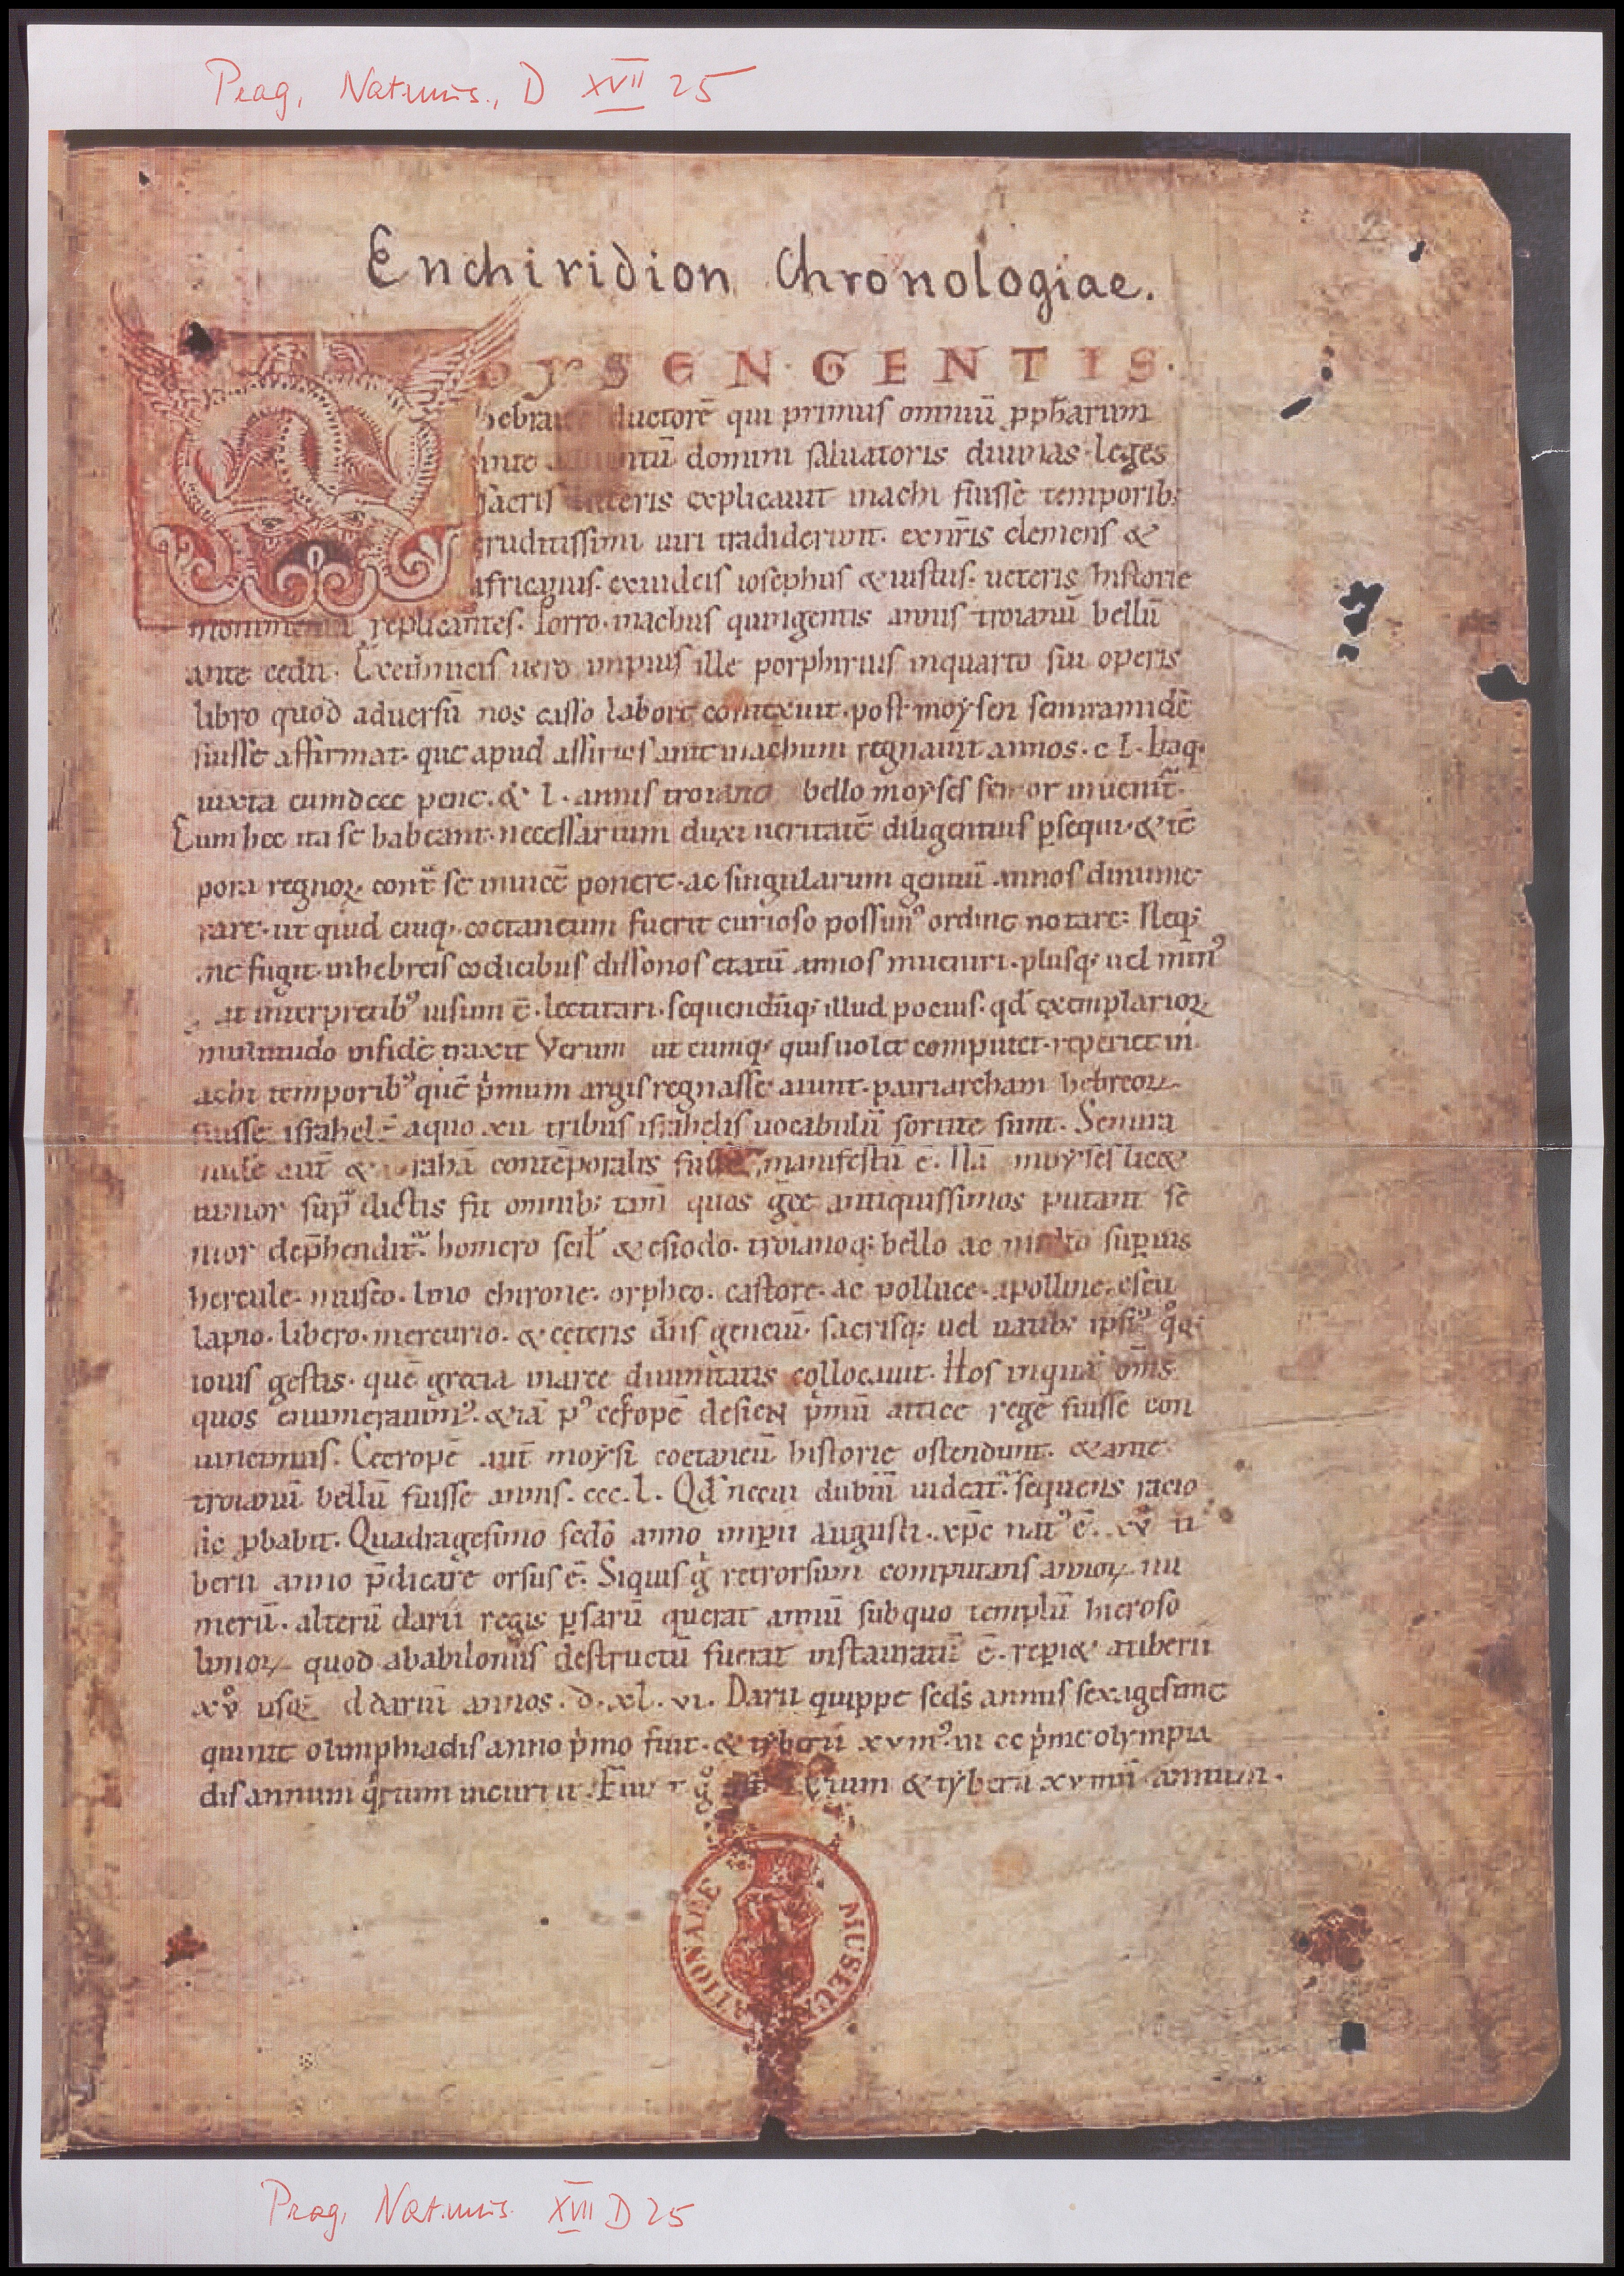 Prag, Natmus., D XVII 25
Enchiridion Chronologiae.
OYSEN·GENTIS·
ductorē qui primus omniū ꝓph̄arum
domini saluatoris diuinas leges
sacris explicauit inachi fuisse temporib;
eruditissimi uiri tradiderunt. exnr̄is clemens &
africanus. exiudeis iosephus &iustus. ueteris historie
monimenta replicantes. Porro inachus quingentis annis troianū bellū
ante cedit. Exethnicis uero impius ille porphirius inquarto sui operis
libro quod aduersū nos casso labore contexuit. post moysen semiramidē
fuisse affirmat. que apud assirios ante inachum regnauit annos. c l. Itaq;
iuxta eum dccc pene. & l. annis troiano bello moyses senior inuenit᷑.
Cum hec ita se habeant. necessarium duxi ueritatē diligentius ꝑsequi. & tē
pora regnoꝝ cont᷑ se inuicē ponere. ac singularum gentiū annos dinume
rare. ut quid cuiq; coetaneum fuerit curioso possim᷒ ordine notare: Neq;
me fugit inhebreis codicibus dissonos etatū annos inueniri. plusq; uel min᷒
ut interpretib᷒ uisum ē. lectitari. sequendūq; illud pocius. qd̄ exemplarioꝝ
multitudo infidē traxit Verum ut cumq; quis uolet computet. reperiet in
achi temporib᷒ quē p̍mum argis regnasse aiunt. patriarcham hebreoꝝ
fuisse israhel. aquo xii tribus israhelis uocabulū sortite sunt. Semira
midē aut̄ & abrahā contēporales fuisse manifestū ē. Nā moyses lic&
iunior sup᷑dictis sit omnib; tam̄ quos gr̄ec antiquissimos putant se
nior dep̄hendit᷑. homero scil̄ & esiodo. troianoq; bello ac multo suꝑius
hercule. museo. lino chirone. orpheo. castore. ac polluce. apolline. escu
lapio. libero. mercurio. & ceteris diis genciū. sacrisq; uel uatib; ipsi᷒ qͦq;
iouis gestis. quē grecia inarce diuinitatis collocauit. Hos inquā om̄s
quos enumerauim᷒. &iā p᷒ cecropē p̍mū attice regē fuisse con
uincimus. Cecropē aut̄ moysi coetaneū historie ostendunt. & ante
troianū bellū fuisse annis. ccc. l. Qd̄ necui dubiū uideat᷑. sequens racio
sic ꝓbabit. Quadragesimo sedō anno imꝑii augusti. xp̄c nat᷒ ē. xvͦ ti
berii anno p̄dicare orsus ē. Siquis g̍ retrorsum computans annoꝝ nu
merū. alterū darii regis ꝑsarū querat annū subquo templū hieroso
limoꝝ quod ababilonus destructū fuerat instauratū ē. reꝑi& atiberii
xvͦ usq; addariū annos. d. xl. vi. Darii quippe scd̄s annus sexagesime
quinte olimphiadis anno p̍mo fuit. & tyberii xvm᷒ in cc p̍me olympia
dis annum q̍rtum incurrit. & tyberii xvmū annum.
NATIONALE MUSEUM
Prag, Natmus. XVII D 25